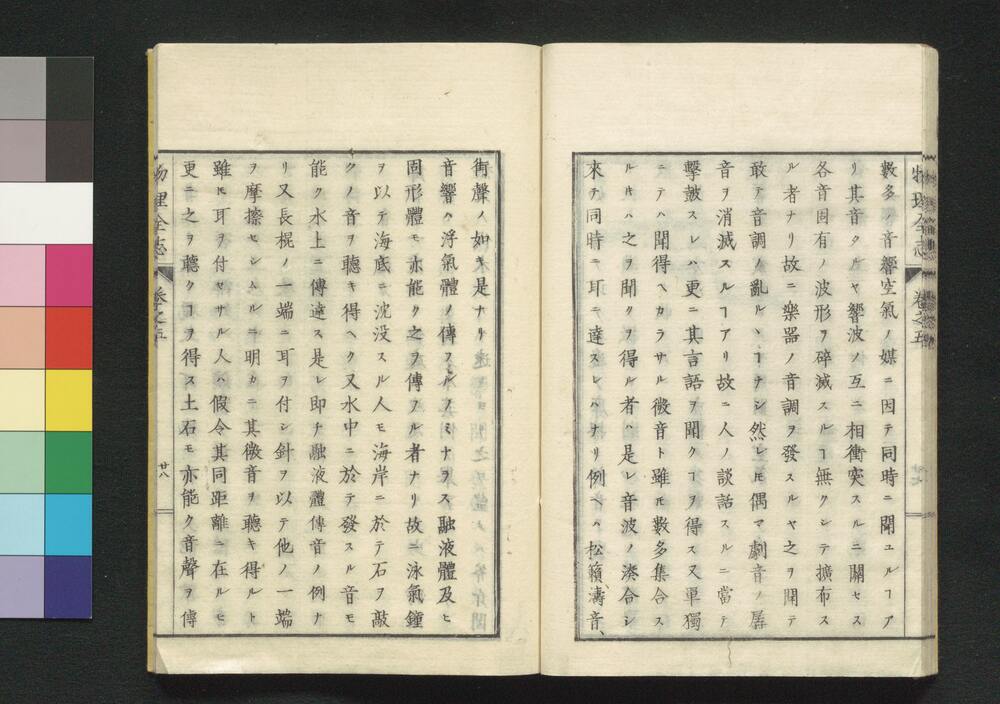 物理全志 卷之五
數多ノ音響空氣ノ媒ニ因テ同時ニ聞ユルヿア
リ其音タルヤ響波ノ互ニ相衝突スルニ關セス
各音固有ノ波形ヲ碎滅スルヿ無クシテ擴布ス
ル者ナリ故ニ樂器ノ音調ヲ發スルヤ之ヲ聞テ
敢テ音調ノ亂ルヽヿナシ然レ𪜈偶マ劇音ノ孱
音ヲ消滅スルヿアリ故ニ人ノ談話スルニ當テ
擊鼓スレハ更ニ其言語ヲ聞クヿヲ得ス又單獨
ニテハ聞得ヘカラサル微音ト雖𪜈數多集合ス
ル𪜈ハ之ヲ聞クヲ得ル者ハ是レ音波ノ湊合シ
來テ同時ニ耳ニ達スレハナリ例ヘハ松籟、濤音、
街聲ノ如キ是ナリ
音響ハ浮氣體ノ傳フルノミナラス融液體及ヒ
固形體モ亦能ク之ヲ傳フル者ナリ故ニ泳氣鐘
ヲ以テ海底ニ沈没スル人モ海岸ニ於テ石ヲ敲
クノ音ヲ聽キ得ヘク又水中ニ於テ發スル音モ
能ク水上ニ傳達ス是レ即チ融液體傳音ノ例ナ
リ又長棍ノ一端ニ耳ヲ付シ針ヲ以テ他ノ一端
ヲ摩擦セシムルニ明カニ其微音ヲ聽キ得ルト
雖𪜈耳ヲ付セサル人ハ假令其同距離ニ在ルモ
更ニ之ヲ聽クヿヲ得ス土石モ亦能ク音聲ヲ傳
物理全志 卷之五 廿八